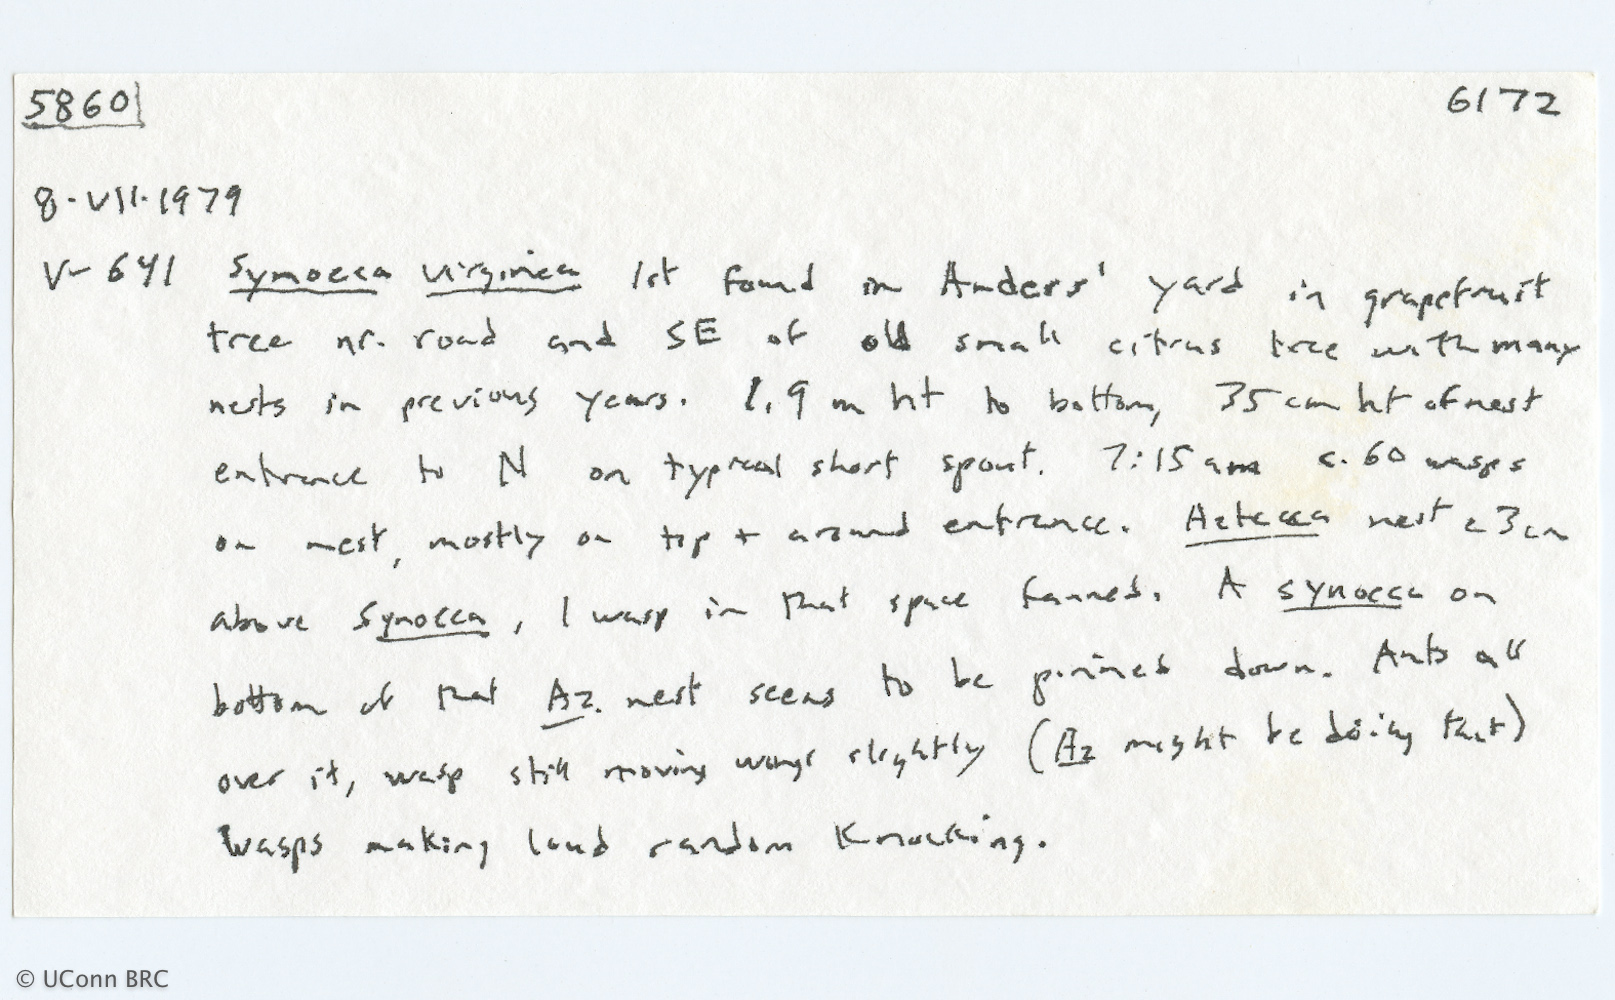 5860 6172
8·VII·1979
V-641 Synoeca virginea 1st found in Anders' yard in grapefruit
tree nr. road and SE of old small citrus tree with many
nests in previous years. 1.9 m ht to bottom, 35 cm ht of nest
entrance to N on typical short spout. 7:15 am c. 60 wasps
on nest, mostly on top + around entrance. Azteca nest c 3 cm
above Synoeca, 1 wasp in that space fanned. A synoeca on
bottom of that Az. nest seems to be pinned down. Ants all
over it, wasp still moving wings slightly (Az might be doing that)
Wasps making loud random Knocking.
© UConn BRC